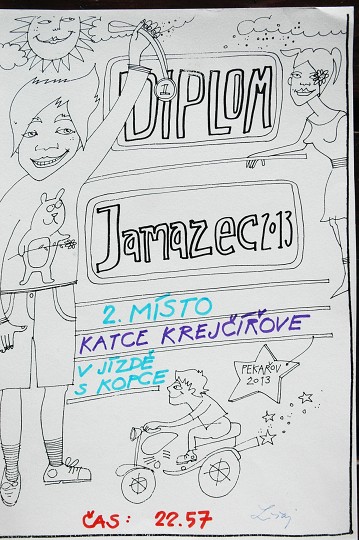 II
DIPLOM
Jamazec 2013
2. MÍSTO
KATCE KREJČÍŘOVE
V JÍZDĚ
S KOPCE
PEKAŘOV
2013
ČAS: 22.57